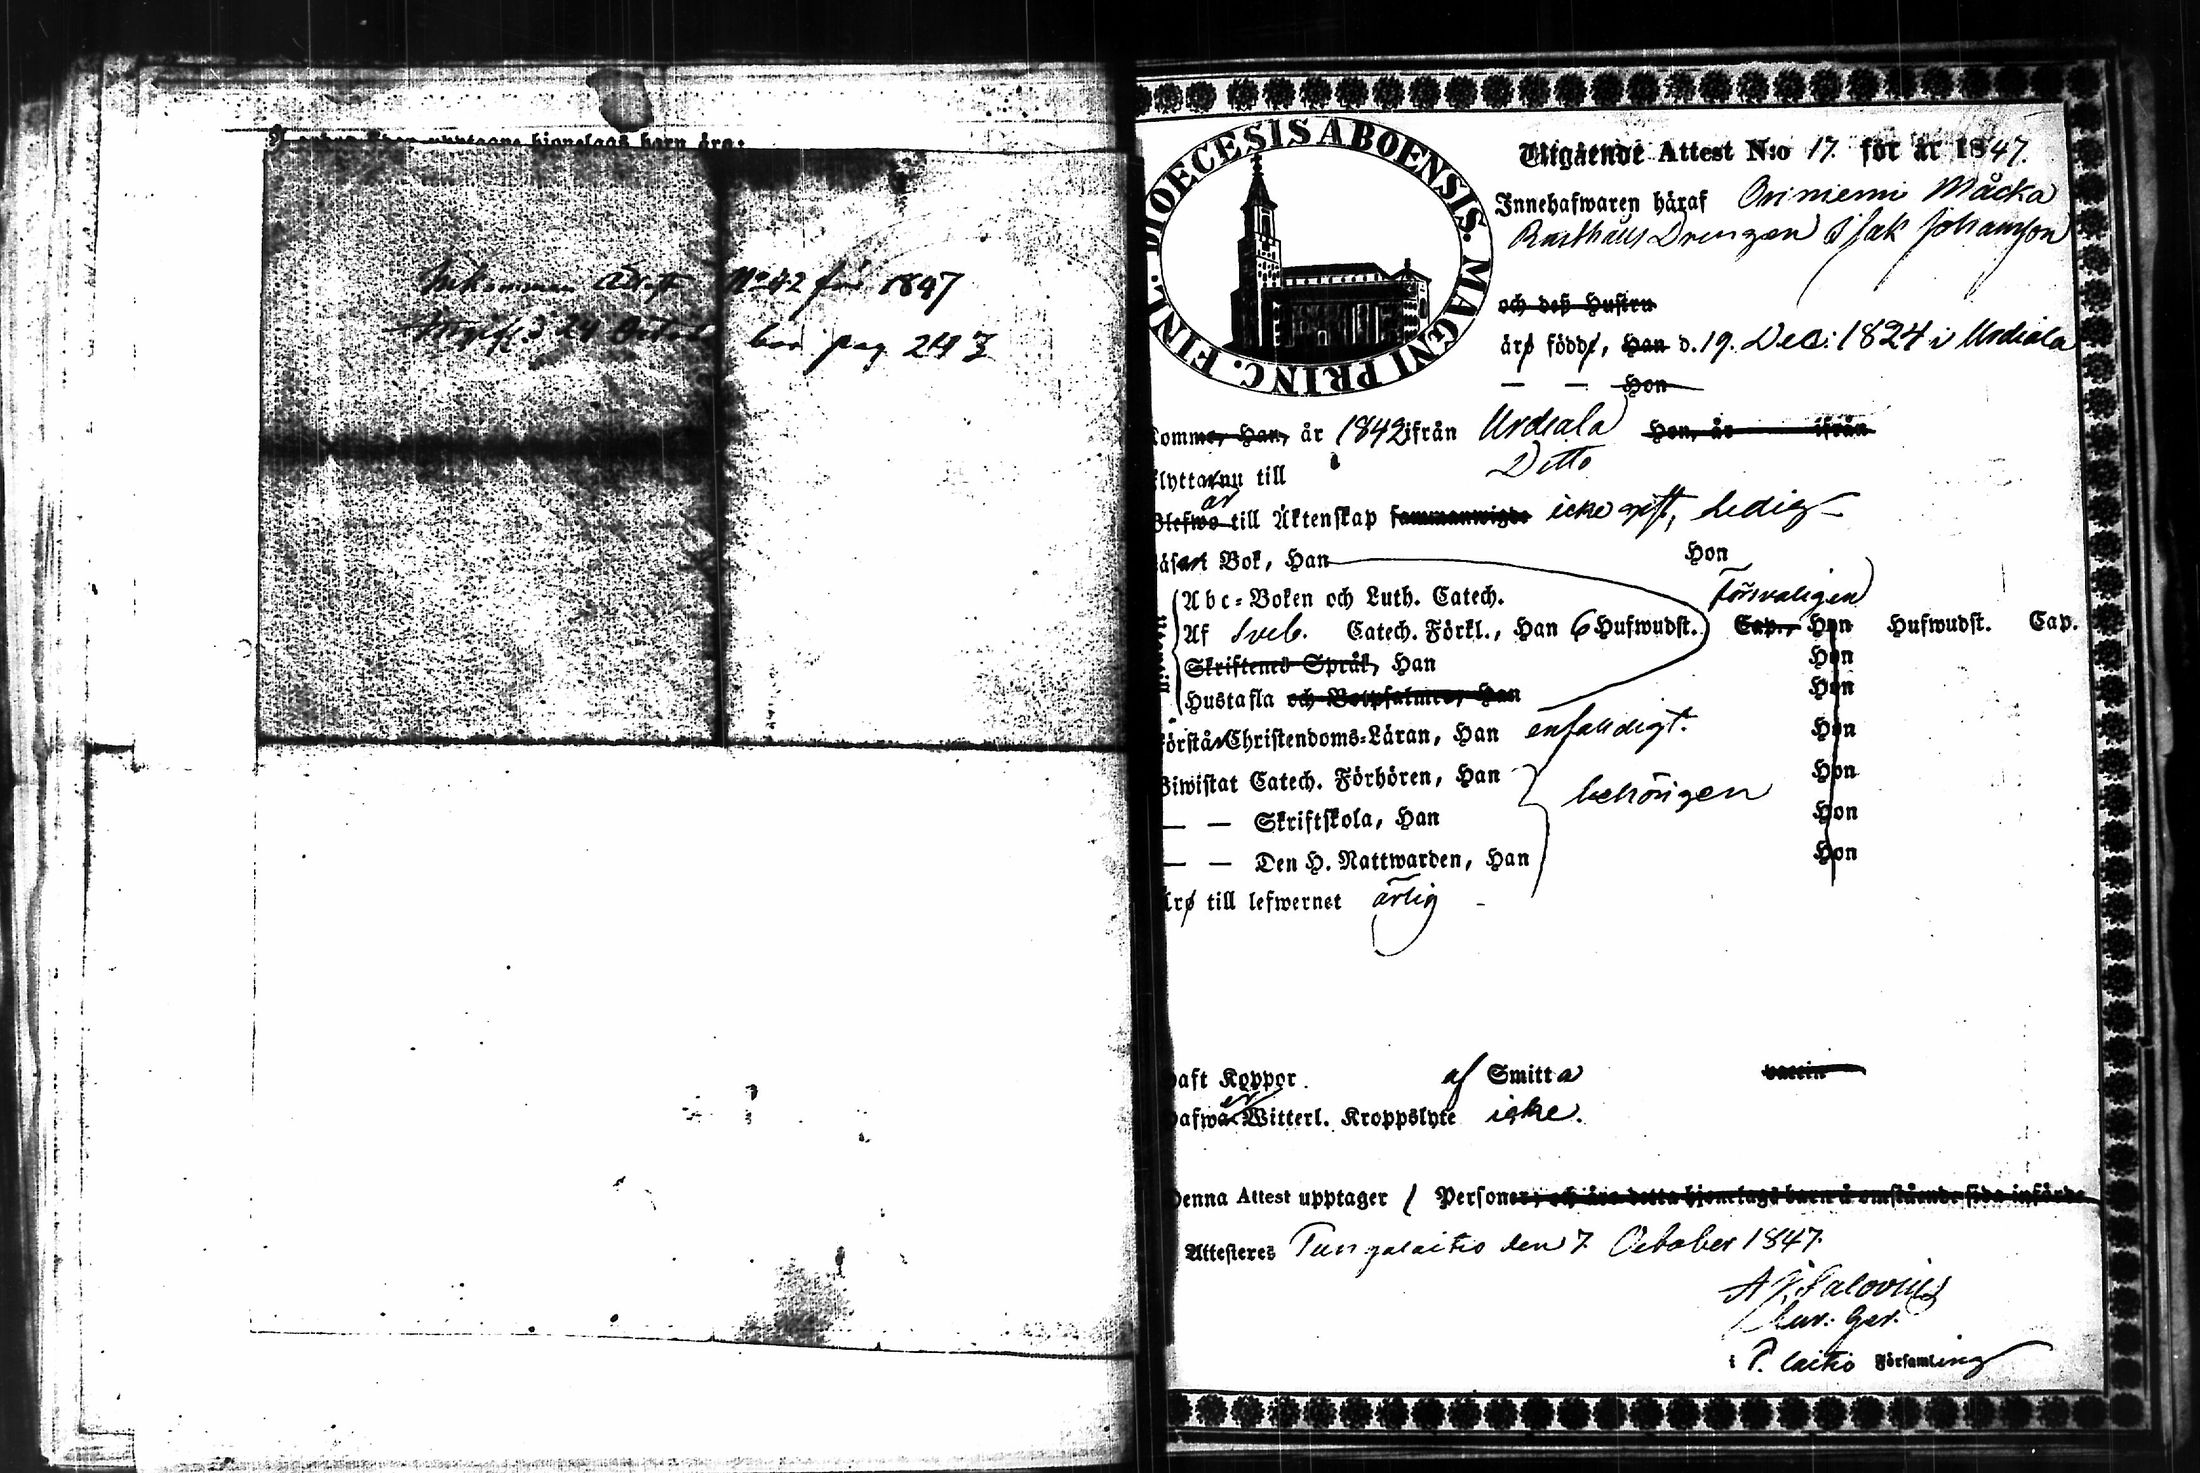 upptagne hjonelags barn äro:
Inkommen Attest No 42 för 1847
24 October pag 243
DIOECESIS ABOENSIS. MAGNI PRINC. FINL.
Utgående Attest N:o 17. för år 1847.
Innehafwaren häraf Oriniemi Måcka
Rusthålls Drengen Isak Johansson
och deß Hustru
äro födde, Han d. 19. Dec: 1824 i Urdiala
— — Hon
komme, Han, år 1842 ifrån Urdiala Hon, år ifrån
flyttar nu till Ditto
Blefwo är till Äktenskap sammanwigde icke gift, ledig
Bok, Han Hon
Abc-Boken och Luth. Catech. Försvarligen
Af Sveb. Catech. Förkl., Han 6 Hufwudst. Cap., Hon Hufwudst. Cap.
Skriftenes Språk, Han Hon
Hustafla och Botpsalmer, Han Hon
förstår Christendoms-Läran, Han enfaldigt. Hon
Biwistat Catech. Förhören, Han behörigen Hon
— — Skriftskola, Han Hon
— — Den H. Nattwarden, Han Hon
äro till lefwernet ärlig
haft Koppor af Smitta vaccin
hafwa er Witterl. Kroppslyte icke.
Denna Attest upptager 1 Personer, och äro detta hjonelags barn å omstående sida införde
Attesteres Pungalaitio den 7. October 1847.
A J Salovius
i P. laitio Församling